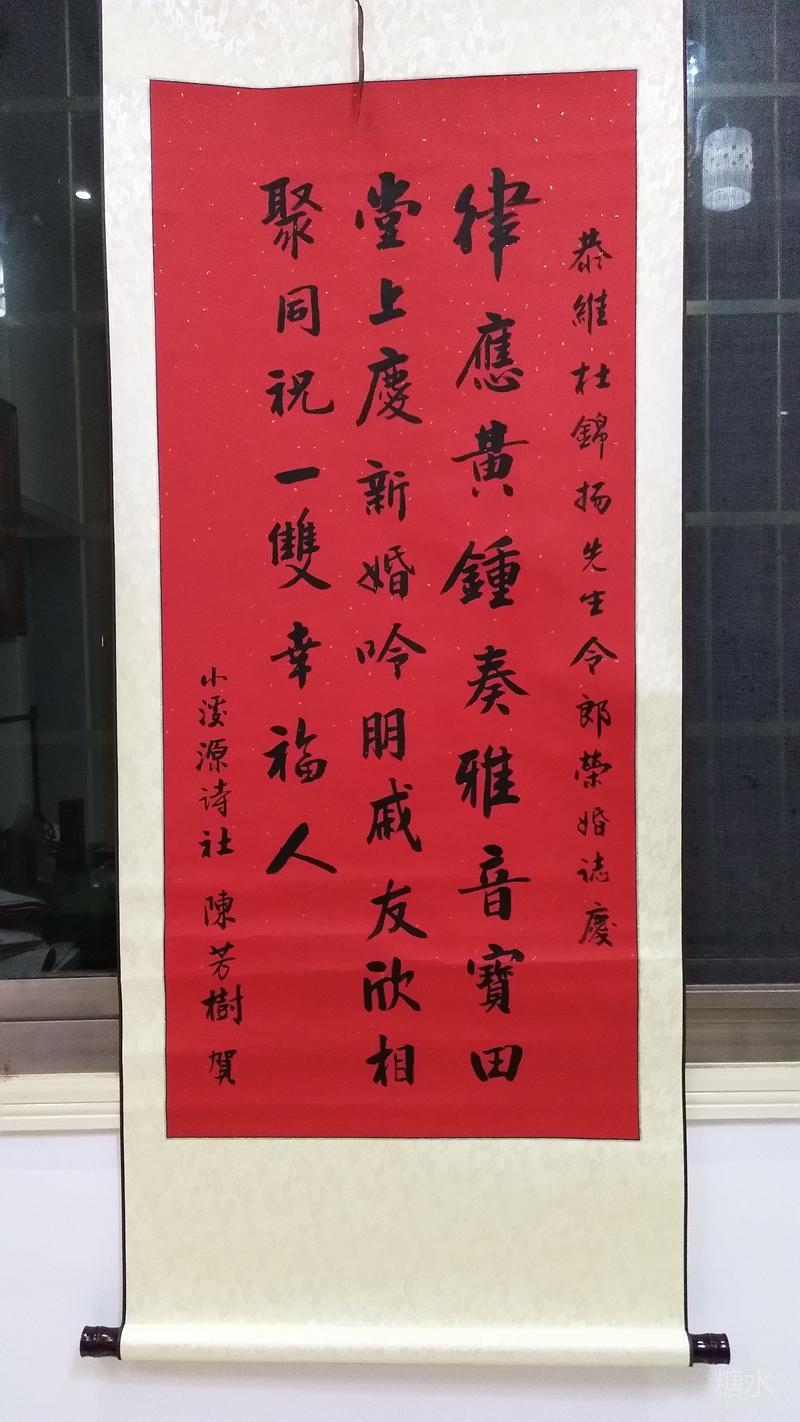 恭維杜錦扬先生令郎榮婚誌慶
律應黃鍾奏雅音寶田
堂上慶新婚吟朋戚友欣相
聚同祝一雙幸福人
小溪源诗社 陳芳樹 賀
糖水